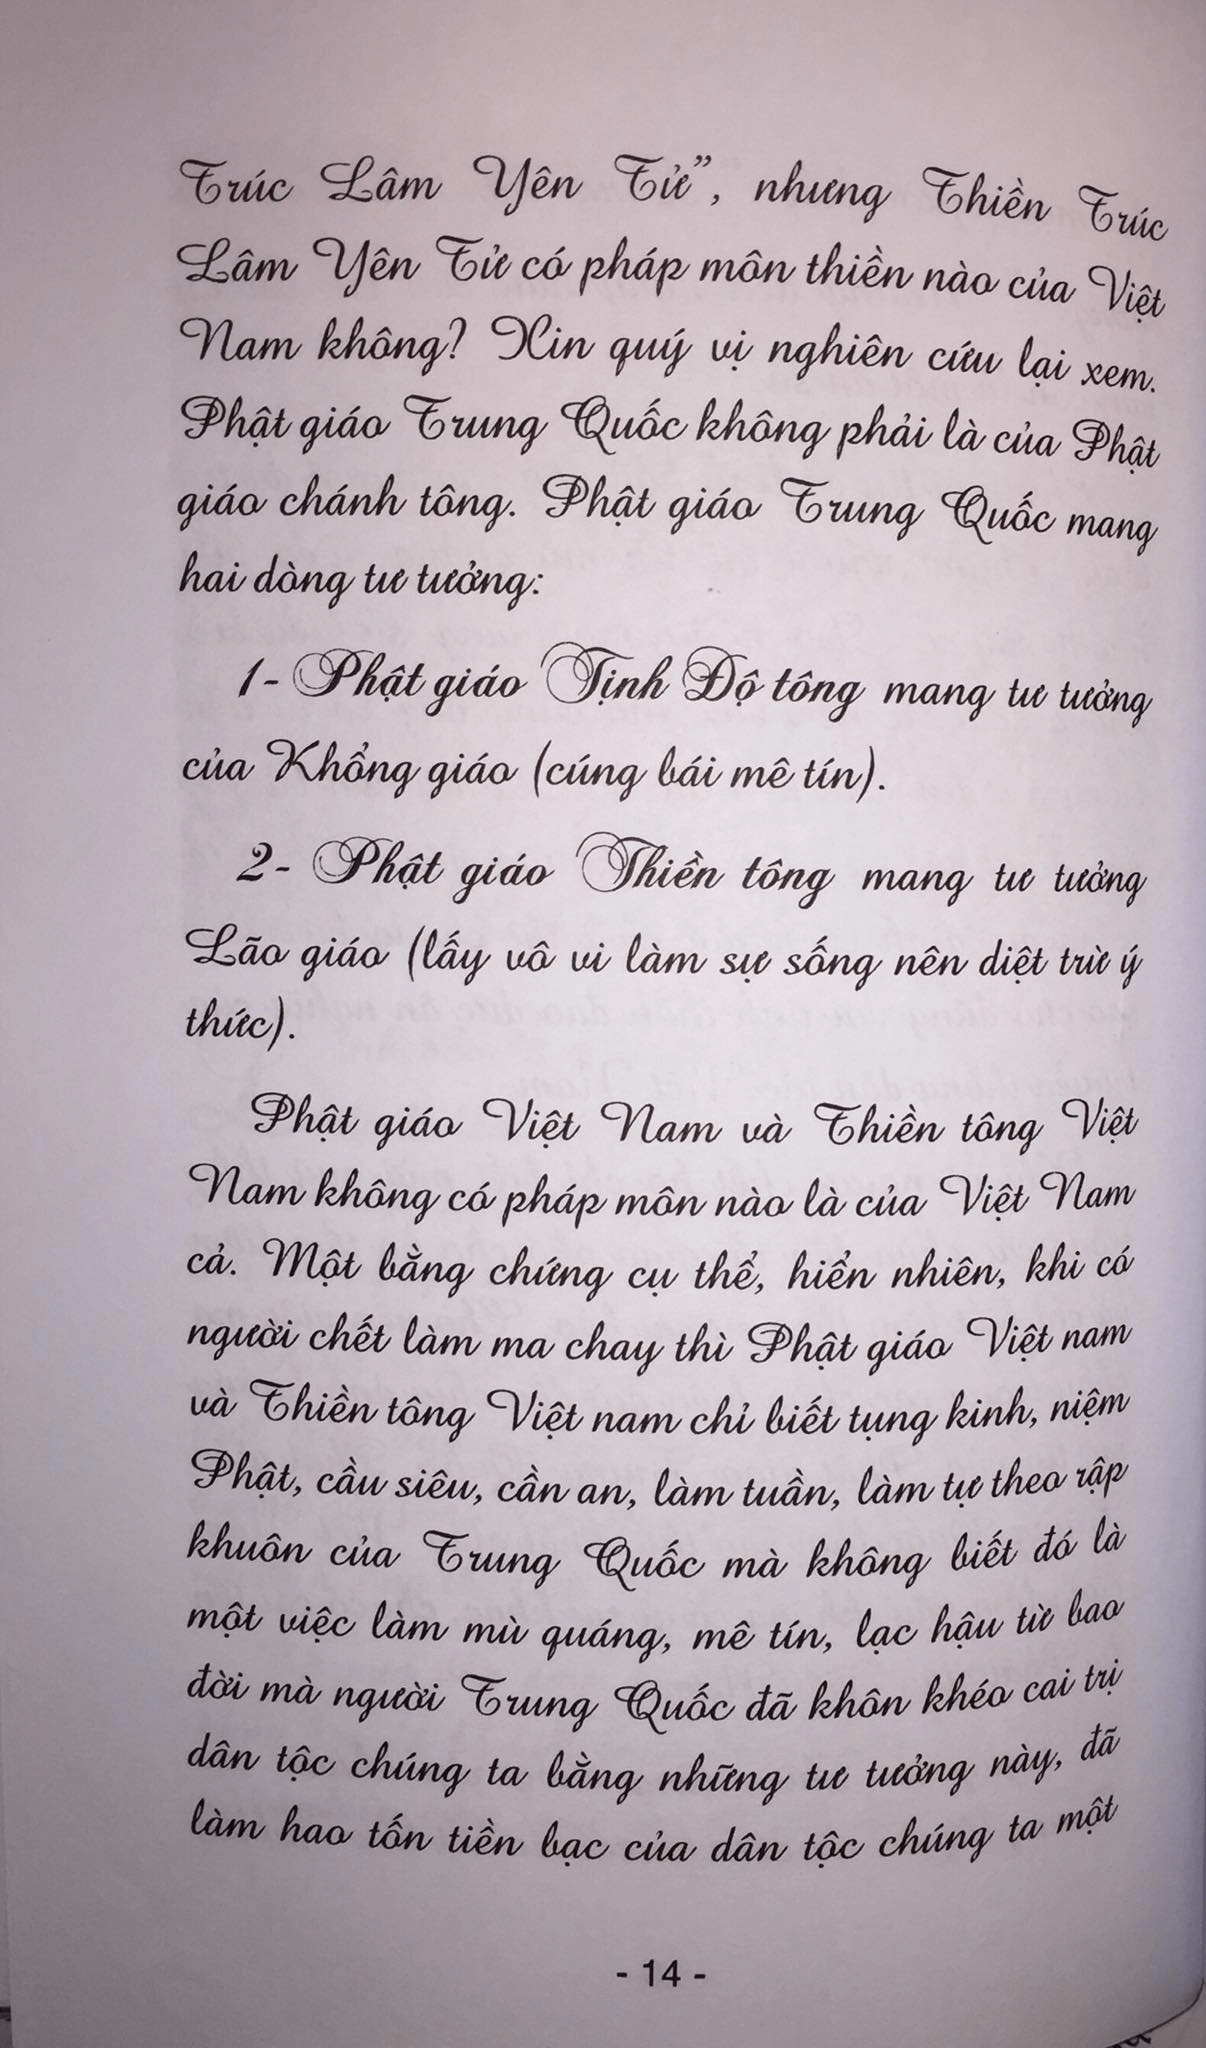 Trúc Lâm Yên Tử”, nhưng Thiền Trúc
Lâm Yên Tử có pháp môn thiền nào của Việt
Nam không? Xin quý vị nghiên cứu lại xem.
Phật giáo Trung Quốc không phải là của Phật
giáo chánh tông. Phật giáo Trung Quốc mang
hai dòng tư tưởng:
1- Phật giáo Tịnh Độ tông mang tư tưởng
của Khổng giáo (cúng bái mê tín).
2- Phật giáo Thiền tông mang tư tưởng
Lão giáo (lấy vô vi làm sự sống nên diệt trừ ý
thức).
Phật giáo Việt Nam và Thiền tông Việt
Nam không có pháp môn nào là của Việt Nam
cả. Một bằng chứng cụ thể, hiển nhiên, khi có
người chết làm ma chay thì Phật giáo Việt nam
và Thiền tông Việt nam chỉ biết tụng kinh, niệm
Phật, cầu siêu, cần an, làm tuần, làm tự theo rập
khuôn của Trung Quốc mà không biết đó là
một việc làm mù quáng, mê tín, lạc hậu từ bao
đời mà người Trung Quốc đã khôn khéo cai trị
dân tộc chúng ta bằng những tư tưởng này, đã
làm hao tốn tiền bạc của dân tộc chúng ta một
- 14 -